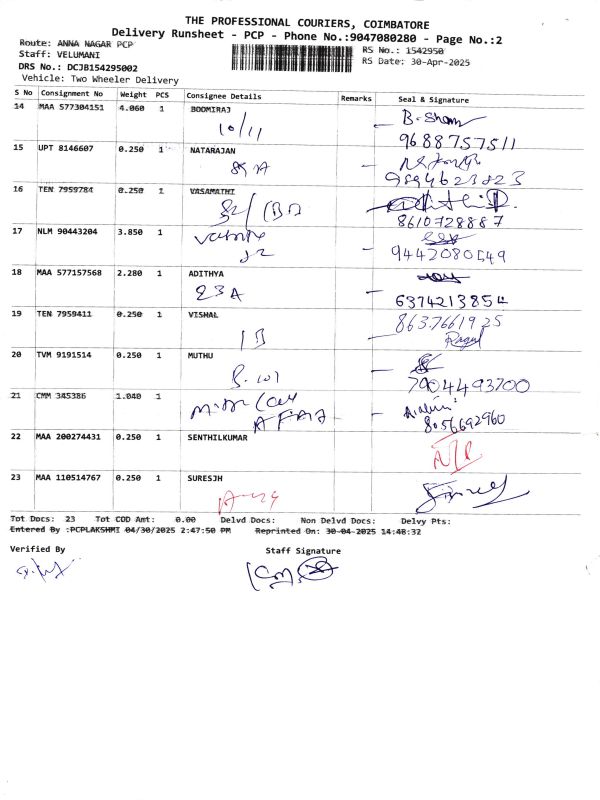 THE PROFESSIONAL COURIERS, COIMBATORE
Delivery Runsheet - PCP - Phone No.:9047080280 - Page No.:2
Route: ANNA NAGAR PCP
RS No.: 1542950
Staff: VELUMANI
RS Date: 30-Apr-2025
DRS No.: DCJB154295002
Vehicle: Two Wheeler Delivery
S No Consignment No Weight PCS Consignee Details Remarks Seal & Signature
14 MAA 577304151 4.060 1 BOOMIRAJ
10/11
B. Sham
9688757511
15 UPT 8146607 0.250 1 NATARAJAN
16 TEN 7959784 0.250 1 VASAMATHI
8610728887
17 NLM 90443204 3.850 1
9442080549
18 MAA 577157568 2.280 1 ADITHYA
23A
6374213854
19 TEN 7959411 0.250 1 VISHAL
1B
8637661925
Ragul
20 TVM 9191514 0.250 1 MUTHU
7904493700
21 CMM 345386 1.040 1
8056692960
22 MAA 200274431 0.250 1 SENTHILKUMAR
23 MAA 110514767 0.250 1 SURESJH
Tot Docs: 23 Tot COD Amt: 0.00 Delvd Docs: Non Delvd Docs: Delvy Pts:
Entered By :PCPLAKSHMI 04/30/2025 2:47:50 PM Reprinted On: 30-04-2025 14:48:32
Verified By
Staff Signature